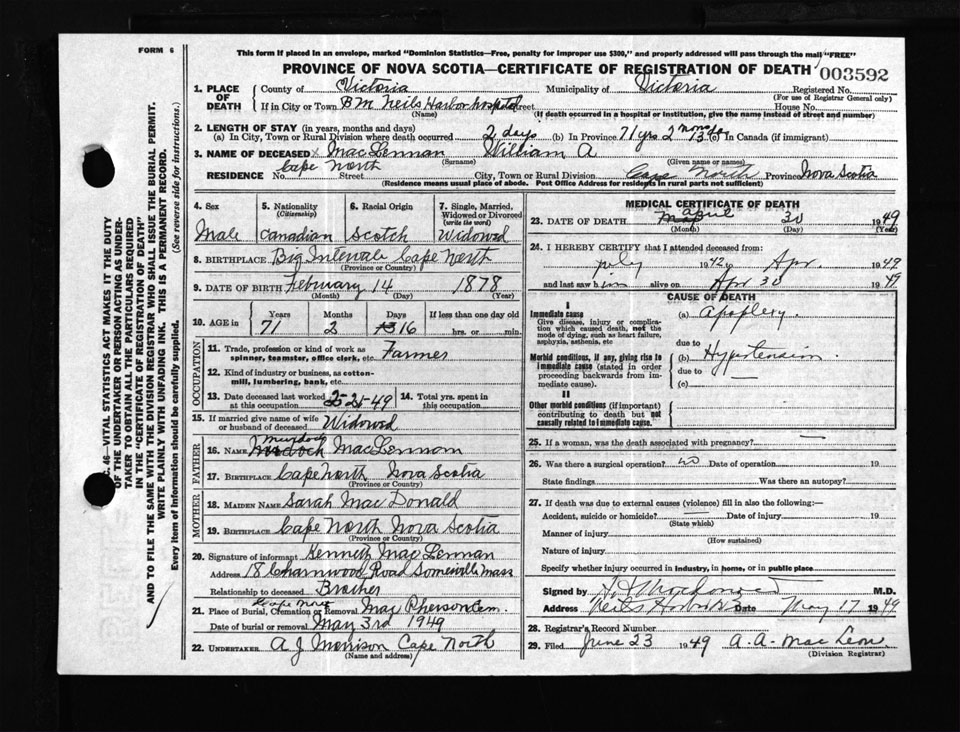 FORM 6
This form if placed in an envelope, marked "Dominion Statistics—Free, penalty for improper use $300," and properly addressed will pass through the mail "FREE"
PROVINCE OF NOVA SCOTIA—CERTIFICATE OF REGISTRATION OF DEATH
003592
1. PLACE OF DEATH
County of Victoria Municipality of Victoria Registered No.
(For use of Registrar General only)
If in City or Town B.M. Neils Harbor hospital Street House No.
(Name) (If death occurred in a hospital or institution, give the name instead of street and number)
2. LENGTH OF STAY (in years, months and days)
(a) In City, Town or Rural Division where death occurred 2 days (b) In Province 71 yrs 2 mon 13 (c) In Canada (if immigrant)
3. NAME OF DECEASED x MacLennan William A
(Surname) (Given name or names)
RESIDENCE No. Cape North Street City, Town or Rural Division Cape North Province Nova Scotia
(Residence means usual place of abode. Post Office Address for residents in rural parts not sufficient)
4. Sex Male
5. Nationality (Citizenship) Canadian
6. Racial Origin Scotch
7. Single, Married, Widowed or Divorced (write the word) Widowed
8. BIRTHPLACE Big Intervale Cape North
(Province or Country)
9. DATE OF BIRTH February 14 1878
(Month) (Day) (Year)
10. AGE in Years Months Days If less than one day old
71 2 16 hrs. or min.
OCCUPATION
11. Trade, profession or kind of work as spinner, teamster, office clerk, etc. Farmer
12. Kind of industry or business, as cotton-mill, lumbering, bank, etc.
13. Date deceased last worked at this occupation 2-21-49
14. Total yrs. spent in this occupation
15. If married give name of wife or husband of deceased Widowed
FATHER
16. NAME Murdoch MacLennan
17. BIRTHPLACE Cape North Nova Scotia
(Province or Country)
MOTHER
18. MAIDEN NAME Sarah MacDonald
19. BIRTHPLACE Cape North Nova Scotia
(Province or Country)
20. Signature of informant Kenneth MacLennan
Address 18 Charnwood Road Somerville Mass
Relationship to deceased Brother
21. Place of Burial, Cremation or Removal MacPherson Cem.
Date of burial or removal May 3rd 1949
22. UNDERTAKER A J Morrison Cape North
(Name and address)
MEDICAL CERTIFICATE OF DEATH
23. DATE OF DEATH April 30 1949
(Month) (Day) (Year)
24. I HEREBY CERTIFY that I attended deceased from:
July 1942 to Apr. 1949
and last saw him alive on Apr 30 1949
CAUSE OF DEATH
I
Immediate cause
Give disease, injury or complication which caused death, not the mode of dying, such as heart failure, asphyxia, asthenia, etc
(a) Apoplexy.
due to
Morbid conditions, if any, giving rise to immediate cause (stated in order proceeding backwards from immediate cause).
(b) Hypertension.
due to
(c)
II
Other morbid conditions (if important) contributing to death but not causally related to immediate cause.
25. If a woman, was the death associated with pregnancy? —
26. Was there a surgical operation? no Date of operation 19
State findings Was there an autopsy?
27. If death was due to external causes (violence) fill in also the following:—
Accident, suicide or homicide? Date of injury 19
(State which)
Manner of injury
(How sustained)
Nature of injury
Specify whether injury occurred in industry, in home, or in public place
Signed by M.D.
Address Neils Harbor Date May 17 1949
28. Registrar's Record Number
29. Filed June 23 1949 A. A. MacLeon
(Division Registrar)
C. 46—VITAL STATISTICS ACT MAKES IT THE DUTY OF THE UNDERTAKER OR PERSON ACTING AS UNDERTAKER TO OBTAIN ALL THE PARTICULARS REQUIRED IN THE "CERTIFICATE OF REGISTRATION OF DEATH" AND TO FILE THE SAME WITH THE DIVISION REGISTRAR WHO SHALL ISSUE THE BURIAL PERMIT.
WRITE PLAINLY WITH UNFADING INK. THIS IS A PERMANENT RECORD.
Every item of information should be carefully supplied. (See reverse side for instructions.)